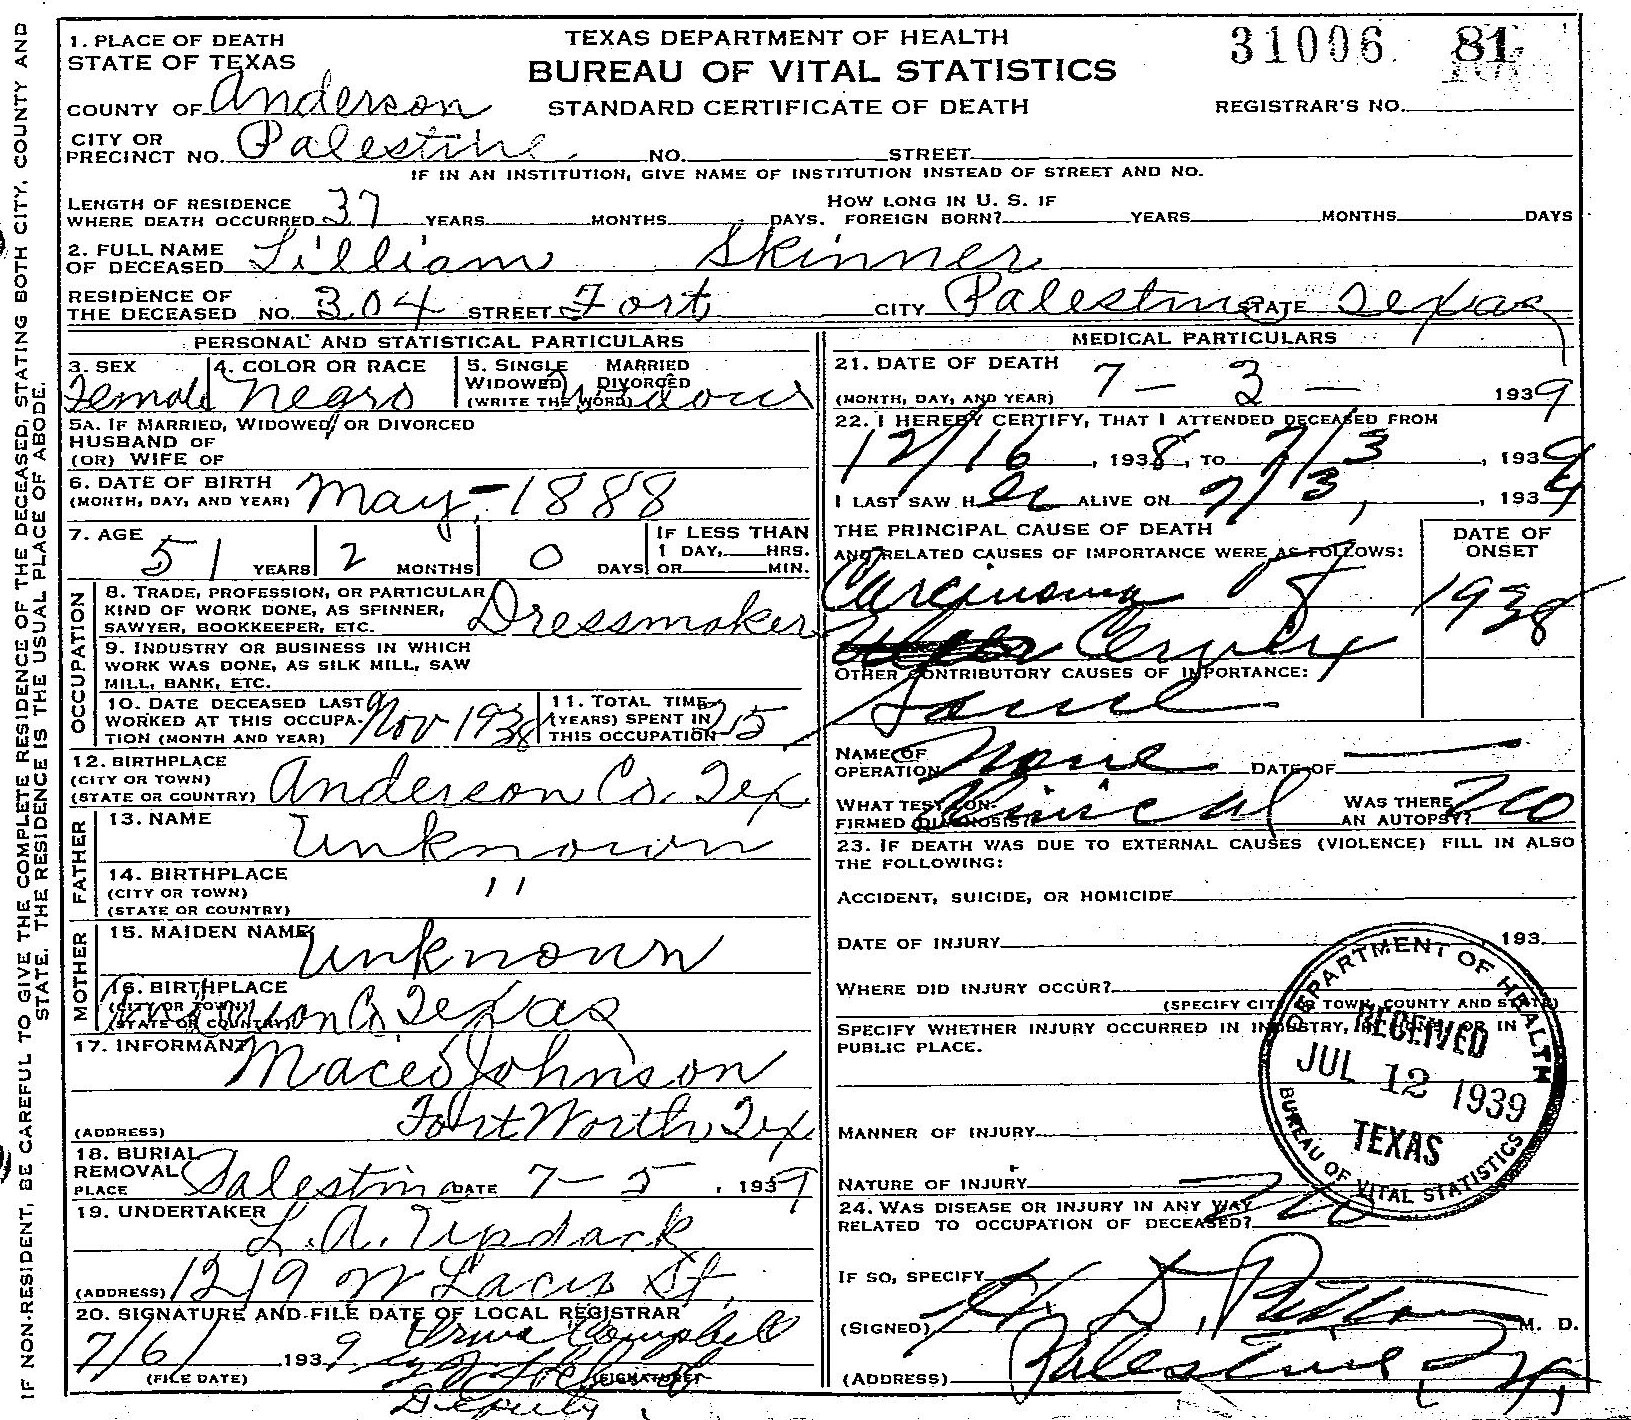 IF NON-RESIDENT, BE CAREFUL TO GIVE THE COMPLETE RESIDENCE OF THE DECEASED, STATING BOTH CITY, COUNTY AND
STATE. THE RESIDENCE IS THE USUAL PLACE OF ABODE.
TEXAS DEPARTMENT OF HEALTH
BUREAU OF VITAL STATISTICS
STANDARD CERTIFICATE OF DEATH
31006 81
REGISTRAR'S NO.
1. PLACE OF DEATH
STATE OF TEXAS
COUNTY OF Anderson
CITY OR
PRECINCT NO. Palestine NO. STREET
IF IN AN INSTITUTION, GIVE NAME OF INSTITUTION INSTEAD OF STREET AND NO.
LENGTH OF RESIDENCE HOW LONG IN U. S. IF
WHERE DEATH OCCURRED 37 YEARS MONTHS DAYS. FOREIGN BORN? YEARS MONTHS DAYS
2. FULL NAME
OF DECEASED Lilliam Skinner
RESIDENCE OF
THE DECEASED NO. 304 STREET Fort CITY Palestine STATE Texas
PERSONAL AND STATISTICAL PARTICULARS
3. SEX
Female
4. COLOR OR RACE
Negro
5. SINGLE MARRIED
WIDOWED DIVORCED
(WRITE THE WORD) Widow
5A. IF MARRIED, WIDOWED, OR DIVORCED
HUSBAND OF
(OR) WIFE OF
6. DATE OF BIRTH
(MONTH, DAY, AND YEAR) May - 1888
7. AGE
51 YEARS 2 MONTHS 0 DAYS
IF LESS THAN
1 DAY, HRS.
OR MIN.
OCCUPATION
8. TRADE, PROFESSION, OR PARTICULAR
KIND OF WORK DONE, AS SPINNER,
SAWYER, BOOKKEEPER, ETC. Dressmaker
9. INDUSTRY OR BUSINESS IN WHICH
WORK WAS DONE, AS SILK MILL, SAW
MILL, BANK, ETC.
10. DATE DECEASED LAST
WORKED AT THIS OCCUPA-
TION (MONTH AND YEAR) Nov 1938
11. TOTAL TIME
(YEARS) SPENT IN
THIS OCCUPATION 25
12. BIRTHPLACE
(CITY OR TOWN)
(STATE OR COUNTRY) Anderson Co. Tex
FATHER
13. NAME Unknown
14. BIRTHPLACE
(CITY OR TOWN) "
(STATE OR COUNTRY)
MOTHER
15. MAIDEN NAME Unknown
16. BIRTHPLACE
(CITY OR TOWN)
(STATE OR COUNTRY) Anderson Co Texas
17. INFORMANT Maceo Johnson
(ADDRESS) Fort Worth, Tex
18. BURIAL
REMOVAL
PLACE Palestine DATE 7-5, 1939
19. UNDERTAKER
L. A. Updack
(ADDRESS) 1219 W Lacy St.
20. SIGNATURE AND FILE DATE OF LOCAL REGISTRAR
7/6/ 1939 Campbell
(FILE DATE) (SIGNATURE)
Deputy
MEDICAL PARTICULARS
21. DATE OF DEATH
(MONTH, DAY, AND YEAR) 7 - 3 - 1939
22. I HEREBY CERTIFY, THAT I ATTENDED DECEASED FROM
12/16, 1938, TO 7/3, 1939
I LAST SAW H er ALIVE ON 7/3, 1939
THE PRINCIPAL CAUSE OF DEATH
AND RELATED CAUSES OF IMPORTANCE WERE AS FOLLOWS:
DATE OF
ONSET
Carcinoma of
Cervix
1938
OTHER CONTRIBUTORY CAUSES OF IMPORTANCE:
Same
NAME OF
OPERATION None DATE OF
WHAT TEST CON-
FIRMED DIAGNOSIS? Clinical
WAS THERE
AN AUTOPSY? no
23. IF DEATH WAS DUE TO EXTERNAL CAUSES (VIOLENCE) FILL IN ALSO
THE FOLLOWING:
ACCIDENT, SUICIDE, OR HOMICIDE
DATE OF INJURY , 193
WHERE DID INJURY OCCUR?
(SPECIFY CITY OR TOWN, COUNTY AND STATE)
SPECIFY WHETHER INJURY OCCURRED IN INDUSTRY, IN HOME, OR IN
PUBLIC PLACE.
MANNER OF INJURY
NATURE OF INJURY
24. WAS DISEASE OR INJURY IN ANY WAY
RELATED TO OCCUPATION OF DECEASED? No
IF SO, SPECIFY
(SIGNED) M. D.
(ADDRESS) Palestine, Tex,
DEPARTMENT OF HEALTH
RECEIVED
JUL 12 1939
TEXAS
BUREAU OF VITAL STATISTICS